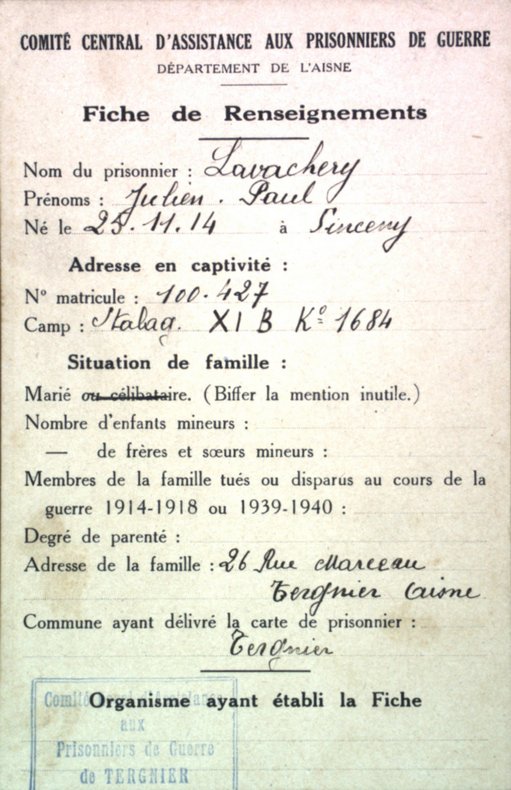 COMITÉ CENTRAL D'ASSISTANCE AUX PRISONNIERS DE GUERRE
DÉPARTEMENT DE L'AISNE
Fiche de Renseignements
Nom du prisonnier : Lavachery
Prénoms : Julien . Paul
Né le 25.11.14 à Sinceny
Adresse en captivité :
N° matricule : 100.427
Camp : Stalag. XI B Ko 1684
Situation de famille :
Marié ou célibataire. (Biffer la mention inutile.)
Nombre d'enfants mineurs :
— de frères et sœurs mineurs :
Membres de la famille tués ou disparus au cours de la
guerre 1914-1918 ou 1939-1940 :
Degré de parenté :
Adresse de la famille : 26 Rue Marceau
Tergnier Aisne
Commune ayant délivré la carte de prisonnier :
Tergnier
Organisme ayant établi la Fiche
Comité d'Assistance
aux
Prisonniers de Guerre
de TERGNIER